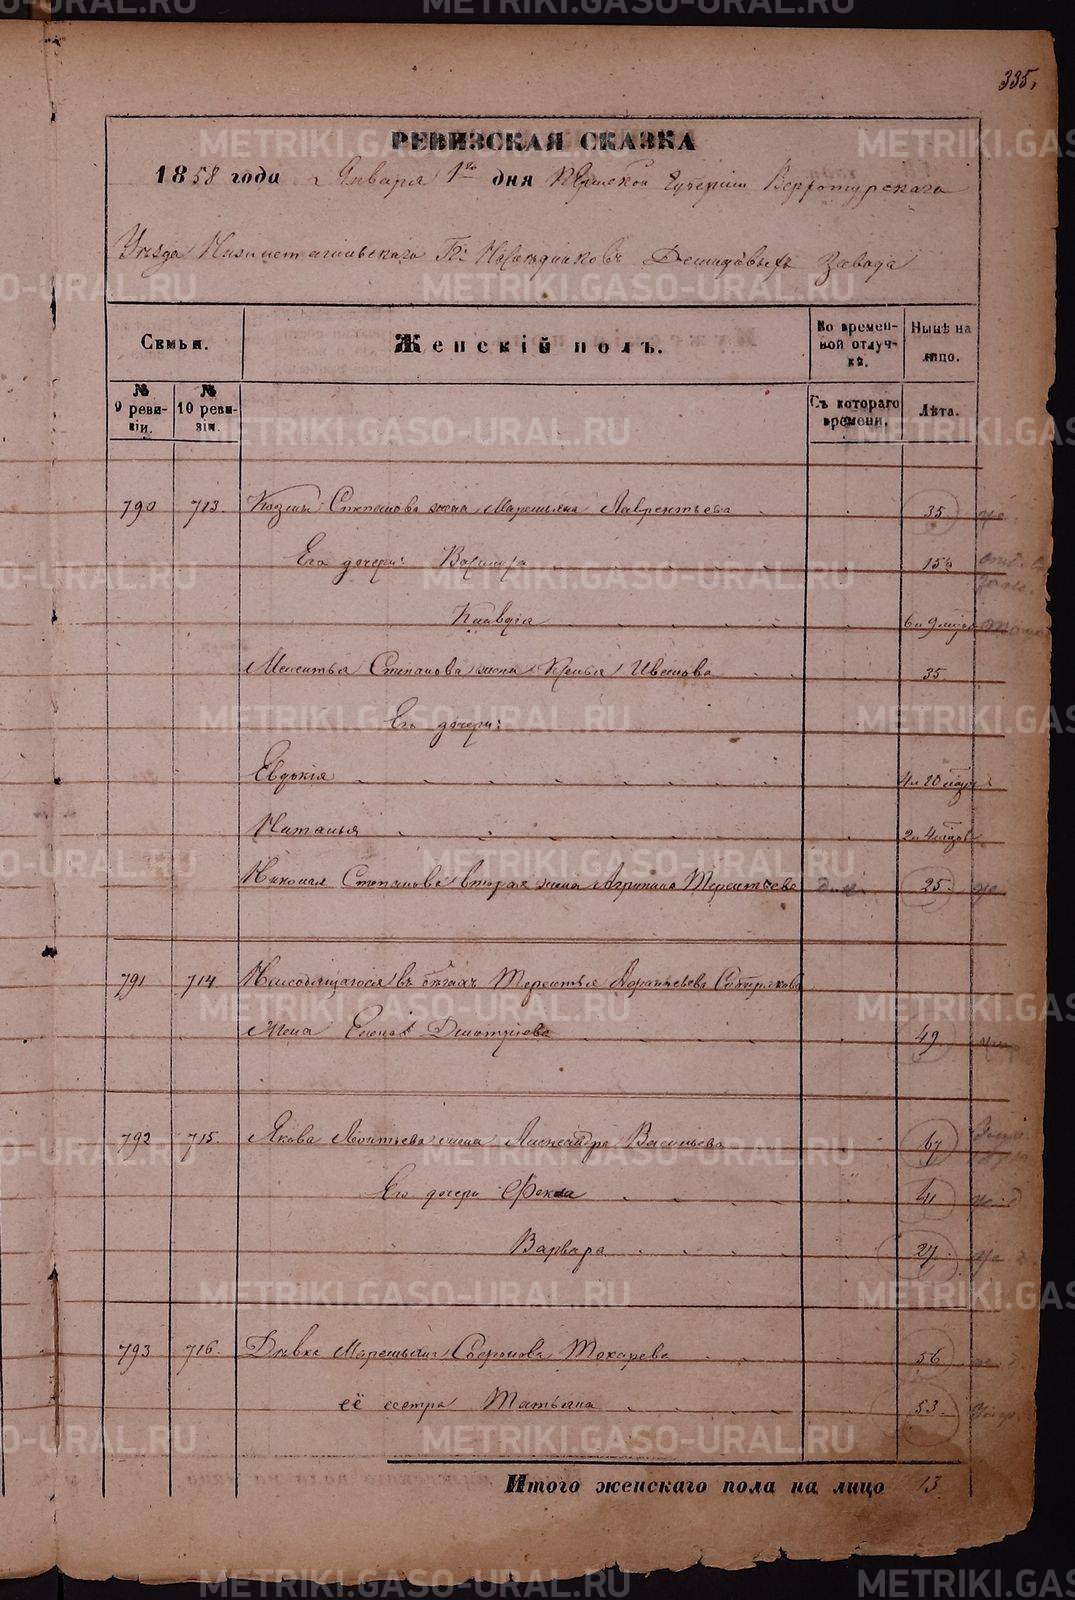 335,
РЕВИЗСКАЯ СКАЗКА
1858 года Января 1го дня Пермской Губерніи Верхотурскаго
Уѣзда Нижнетагильскаго Гг. Наслѣдниковъ Демидовыхъ Завода
Семьи. Женскій полъ. Во временной отлучкѣ. Нынѣ на лицо.
№ 9 ревизіи. № 10 ревизіи. Съ котораго времени. Лѣта.
790 713 Козмы Степанова жена Маремьяна Лаврентьева 35
Его дочери: Варвара 15
Клавдія 9 мѣсяц
Мелентья Степанова жена Иванова 35
Его дочери:
Евдокія 4 и 10 мѣсяц
Наталья 2 и 4 мѣсяц
Николая Степанова вторая жена Агрипина Терентьева 25.
791 714 Находящагося въ бѣгахъ Терентья
Жена Елена Дмитріева 49
792 715. Якова Леонтьева жена Александра Васильева 67
Его дочери Фекла 41
Варвара 27.
793 716. Дѣвка Маремьяна Токарева 56
её сестра Татьяна 53.
Итого женскаго пола на лицо 13
METRIKI.GASO-URAL.RU